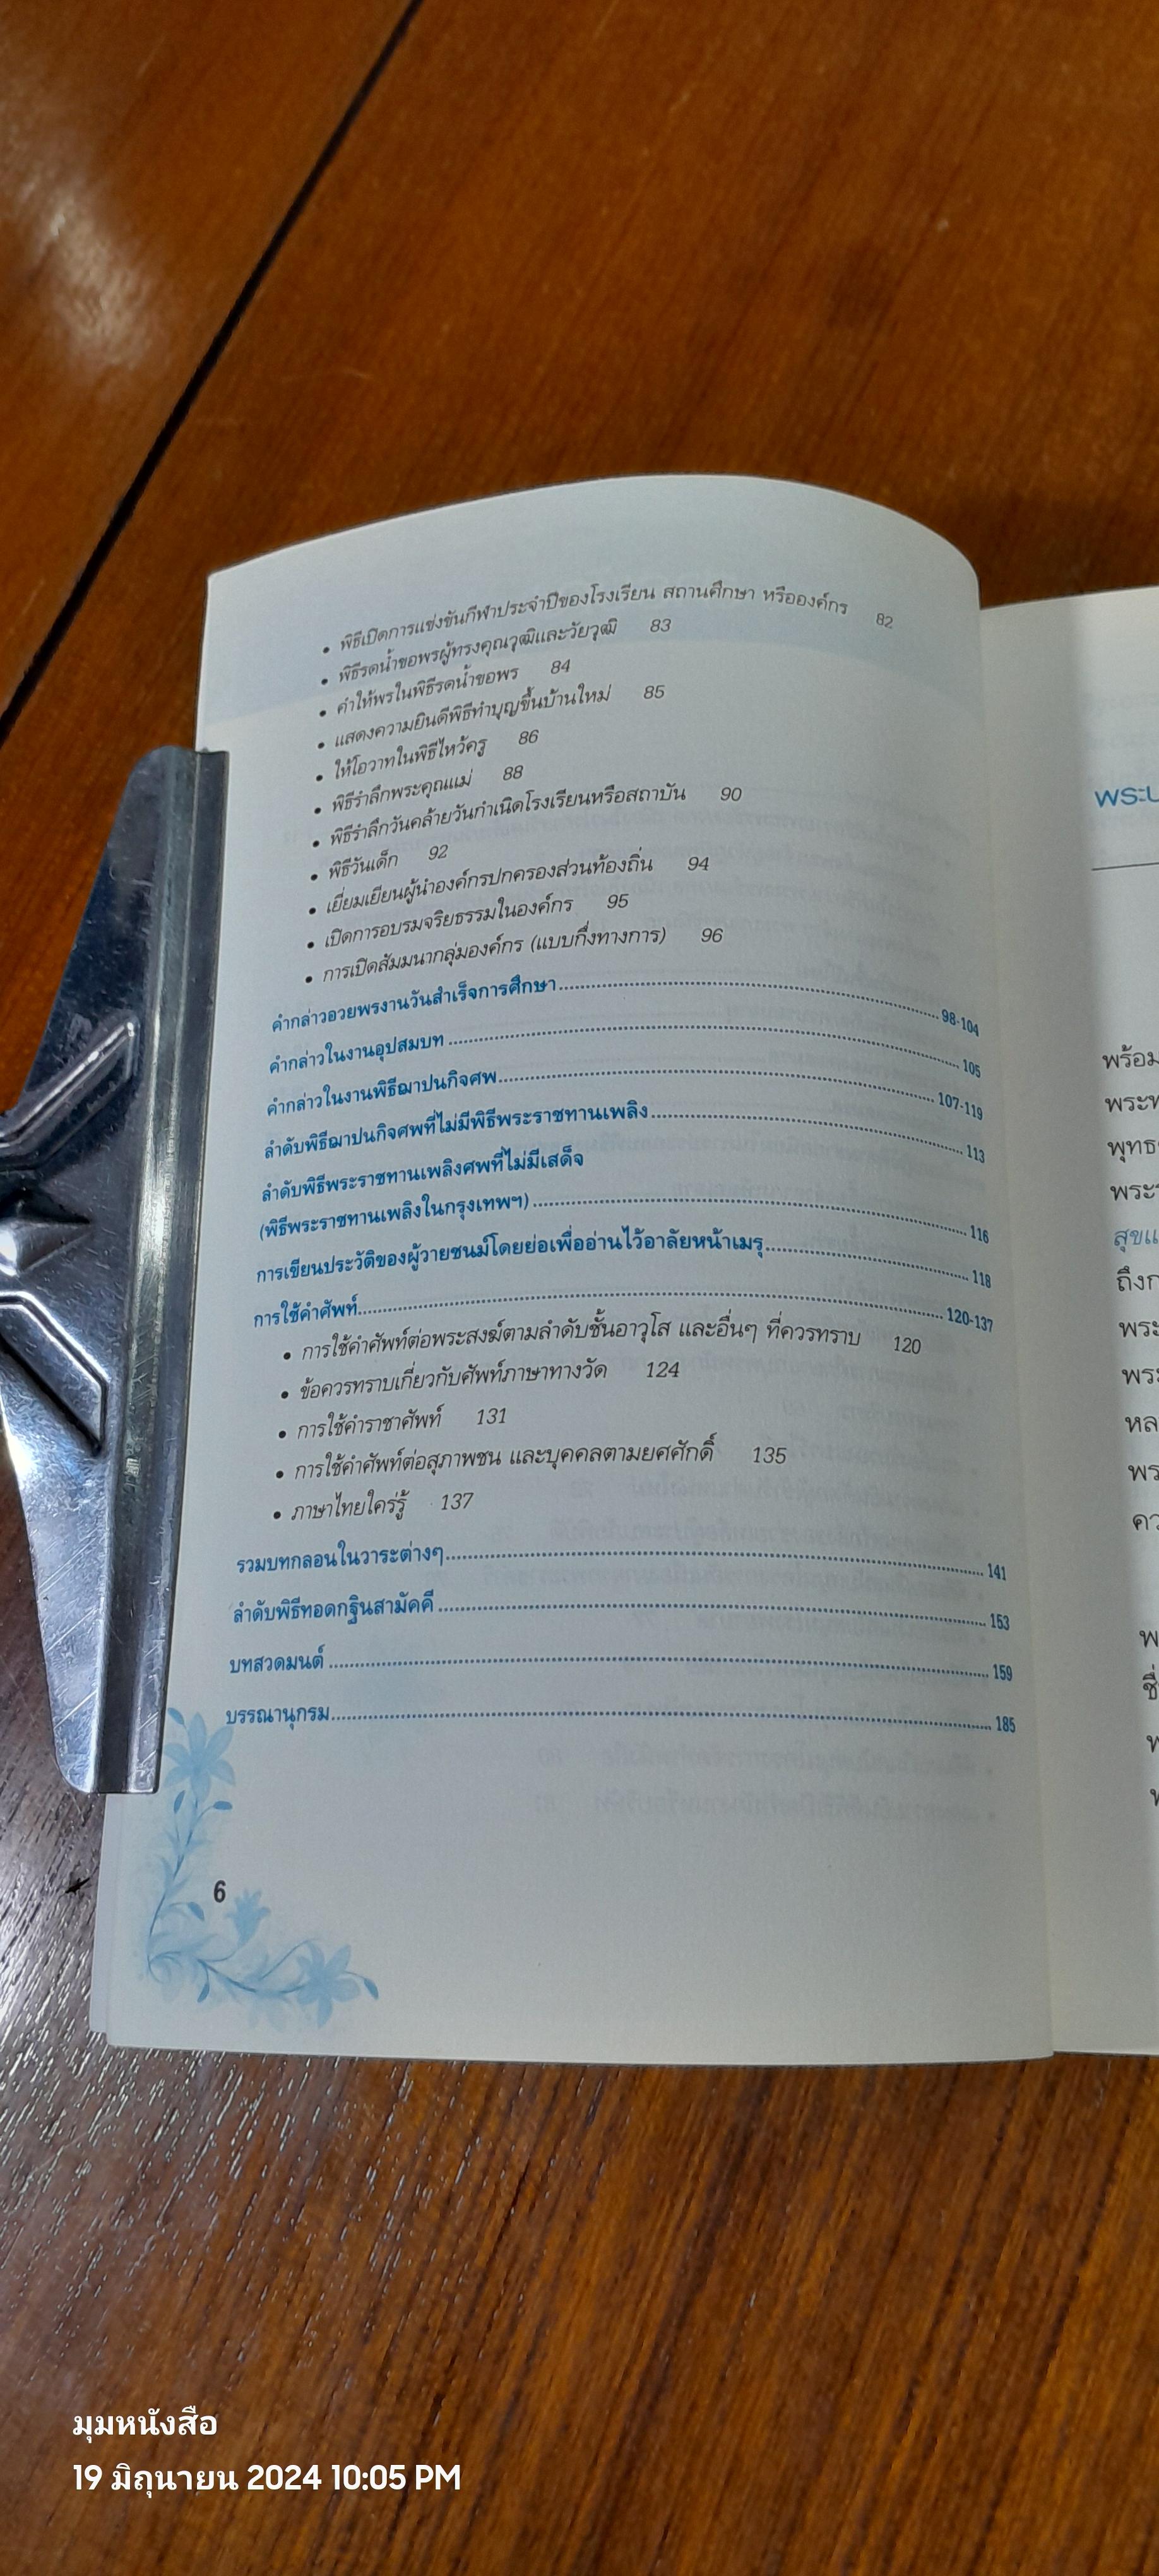 • พิธีเปิดการแข่งขันกีฬาประจำปีของโรงเรียน สถานศึกษา หรือองค์กร 82
• พิธีรดน้ำขอพรผู้ทรงคุณวุฒิและวัยวุฒิ 83
• คำให้พรในพิธีรดน้ำขอพร 84
• แสดงความยินดีพิธีทำบุญขึ้นบ้านใหม่ 85
• ให้โอวาทในพิธีไหว้ครู 86
• พิธีรำลึกพระคุณแม่ 88
• พิธีรำลึกวันคล้ายวันกำเนิดโรงเรียนหรือสถาบัน 90
• พิธีวันเด็ก 92
• เยี่ยมเยียนผู้นำองค์กรปกครองส่วนท้องถิ่น 94
• เปิดการอบรมจริยธรรมในองค์กร 95
• การเปิดสัมมนากลุ่มองค์กร (แบบกึ่งทางการ) 96
คำกล่าวอวยพรงานวันสำเร็จการศึกษา 98-104
คำกล่าวในงานอุปสมบท 105
คำกล่าวในงานพิธีฌาปนกิจศพ 107-119
ลำดับพิธีฌาปนกิจศพที่ไม่มีพิธีพระราชทานเพลิง 113
ลำดับพิธีพระราชทานเพลิงศพที่ไม่มีเสด็จ
(พิธีพระราชทานเพลิงในกรุงเทพฯ) 116
การเขียนประวัติของผู้วายชนม์โดยย่อเพื่ออ่านไว้อาลัยหน้าเมรุ 118
การใช้คำศัพท์ 120-137
• การใช้คำศัพท์ต่อพระสงฆ์ตามลำดับชั้นอาวุโส และอื่นๆ ที่ควรทราบ 120
• ข้อควรทราบเกี่ยวกับศัพท์ภาษาทางวัด 124
• การใช้คำราชาศัพท์ 131
• การใช้คำศัพท์ต่อสุภาพชน และบุคคลตามยศศักดิ์ 135
• ภาษาไทยใคร่รู้ 137
รวมบทกลอนในวาระต่างๆ 141
ลำดับพิธีทอดกฐินสามัคคี 153
บทสวดมนต์ 159
บรรณานุกรม 185
6
พร้อม
สุขแ
ถึงก
พระ
มุมหนังสือ
19 มิถุนายน 2024 10:05 PM